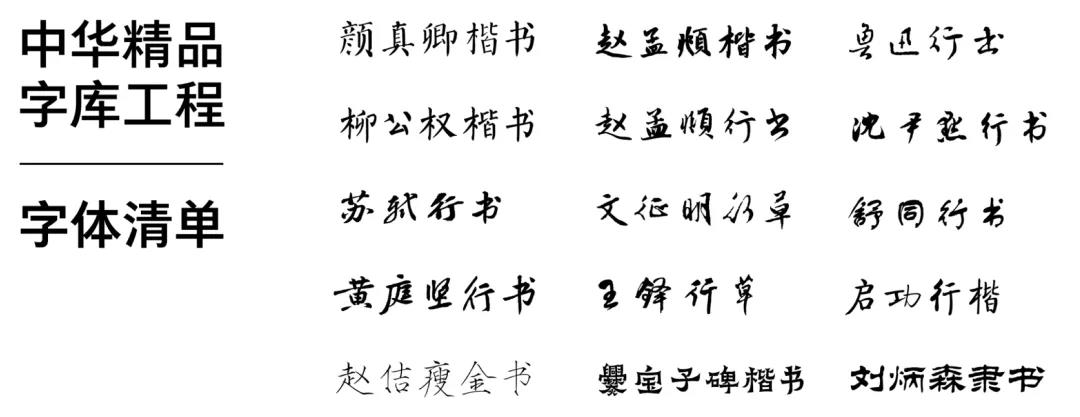 中华精品
字库工程
字体清单
颜真卿楷书
赵孟頫楷书
鲁迅行书
柳公权楷书
赵孟頫行书
沈尹默行书
苏轼行书
文征明行草
舒同行书
黄庭坚行书
王铎行草
启功行楷
赵佶瘦金书
爨宝子碑楷书
刘炳森隶书